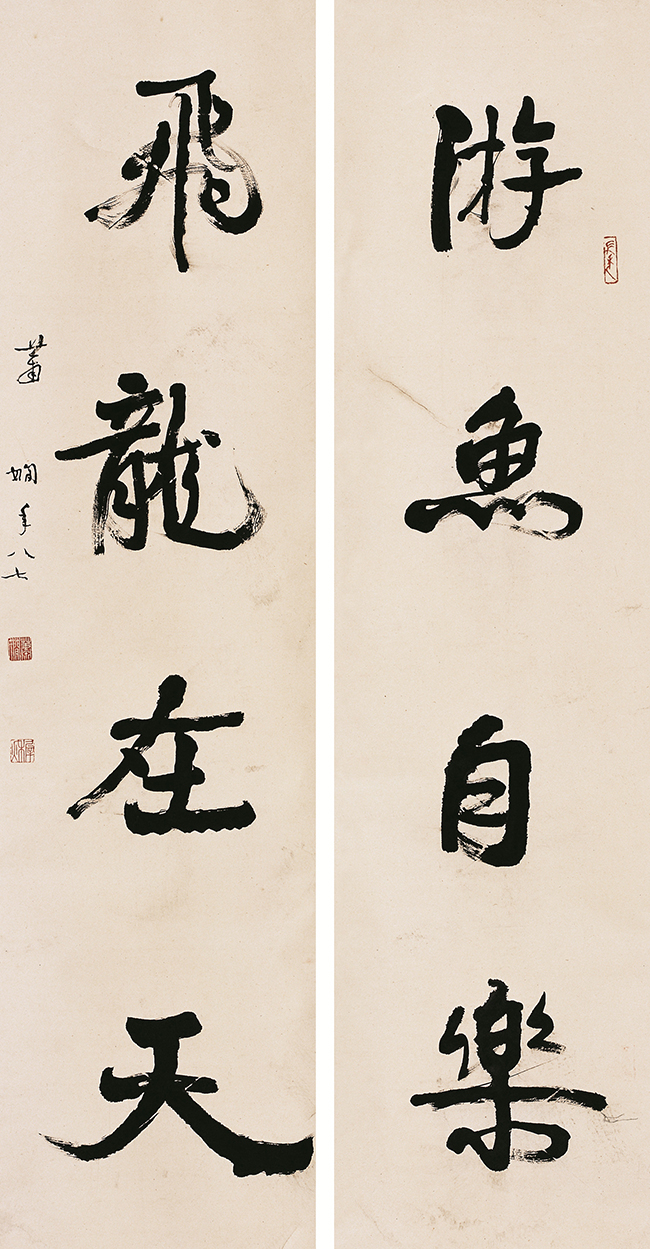 游魚自樂
飛龍在天
蕭嫻年八七